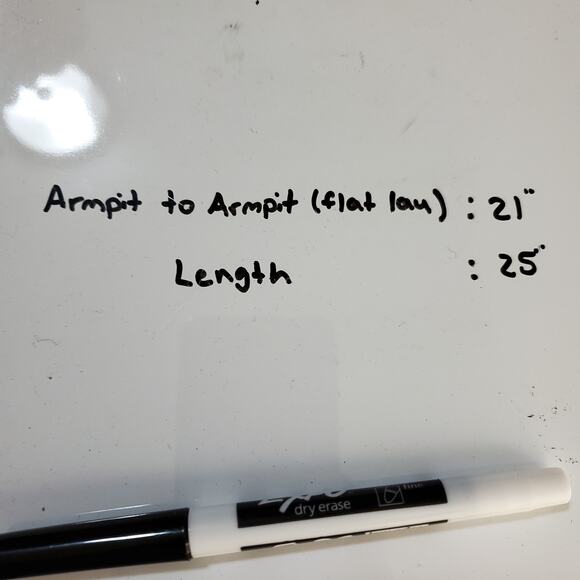 Armpit to Armpit (flat lay) : 21"
Length : 25"
dry erase
fine